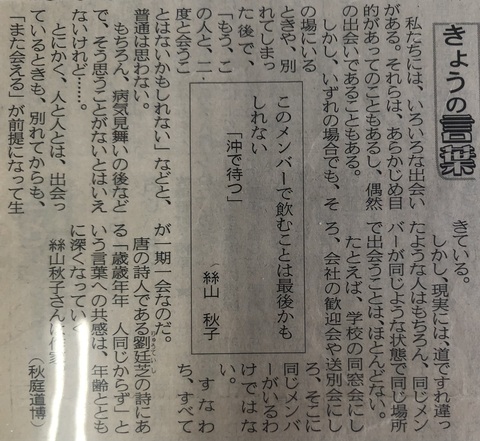 きょうの言葉
私たちには、いろいろな出会い
がある。それらは、あらかじめ目
的があってのこともあるし、偶然
の出会いであることもある。
しかし、いずれの場合でも、そ
の場にいる
ときや、別
れてしまっ
た後で、
「もう、こ
の人と、二
度と会うこ
とはないかもしれない」などと、
普通は思わない。
もちろん、病気見舞いの後など
で、そう思うことがないとはいえ
ないけれど……。
とにかく、人と人とは、出会っ
ているときも、別れてからも、
「また会える」が前提になって生
このメンバーで飲むことは最後かも
しれない
「沖で待つ」
絲山 秋子
きている。
しかし、現実には、道ですれ違っ
たような人はもちろん、同じメン
バーが同じような状態で同じ場所
で出会うことは、ほとんどない。
たとえば、学校の同窓会にし
ろ、会社の歓迎会や送別会にし
ろ、そこに
同じメンバ
ーがいるわ
けではな
い。
すなわ
ち、すべて
が一期一会なのだ。
唐の詩人である劉廷芝の詩にあ
る「歳歳年年 人同じからず」と
いう言葉への共感は、年齢ととも
に深くなっていく。
絲山秋子さんは作家。
（秋庭道博）